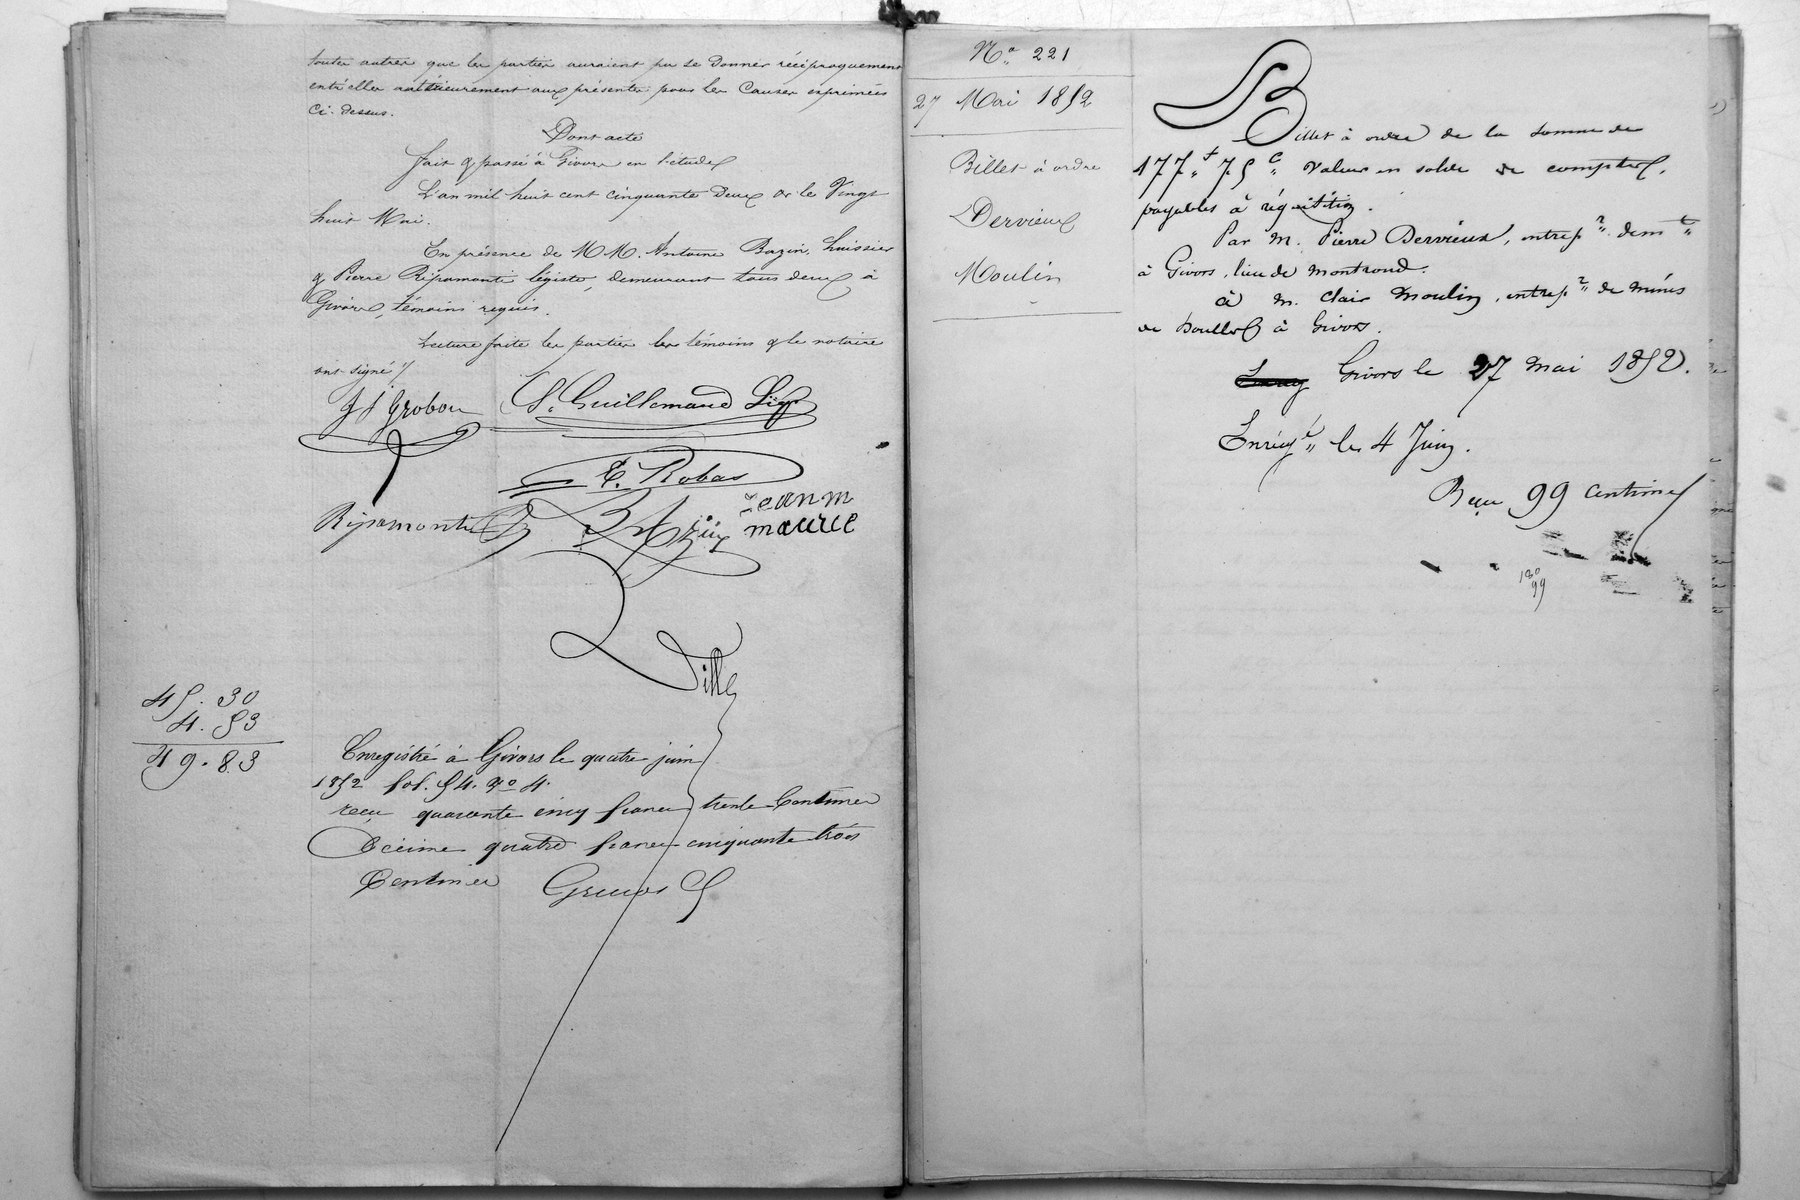 toutes autres que les parties auraient pu se donner réciproquement
entr'elles antérieurement aux présentes pour les causes exprimées
ci-dessus.
Dont acte
fait & passé à Givors en l'étude
L'an mil huit cent cinquante deux & le Vingt
huit Mai.
En présence de MM. Antoine Bazin, huissier
& Pierre Ripamonti légiste, demeurant tous deux à
Givors, témoins requis.
Lecture faite les parties les témoins & le notaire
ont signé ./.
Grobon Guillemaud
Robas
Ripamonti Bazin jeann
maurice
Ville
45. 30
4. 53
49. 83
Enregistré à Givors le quatre juin
1852 fol. 54. Vo 4.
reçu quarante cinq francs trente Centimes
Décime quatre francs cinquante trois
Centimes
No 221
27 Mai 1852
Billet à ordre
Dervieux
Moulin
Billet à ordre de la somme de
177 f 75 c valeur en solde de compte,
payables à réquisition.
Par m. Pierre Dervieux, entrepr demt
à Givors, lieu de Montrond.
à m. Clair Moulin, entrepr de mines
de houille à Givors.
Givors le 27 mai 1852.
Enregé le 4 Juin.
Reçu 99 centimes
99